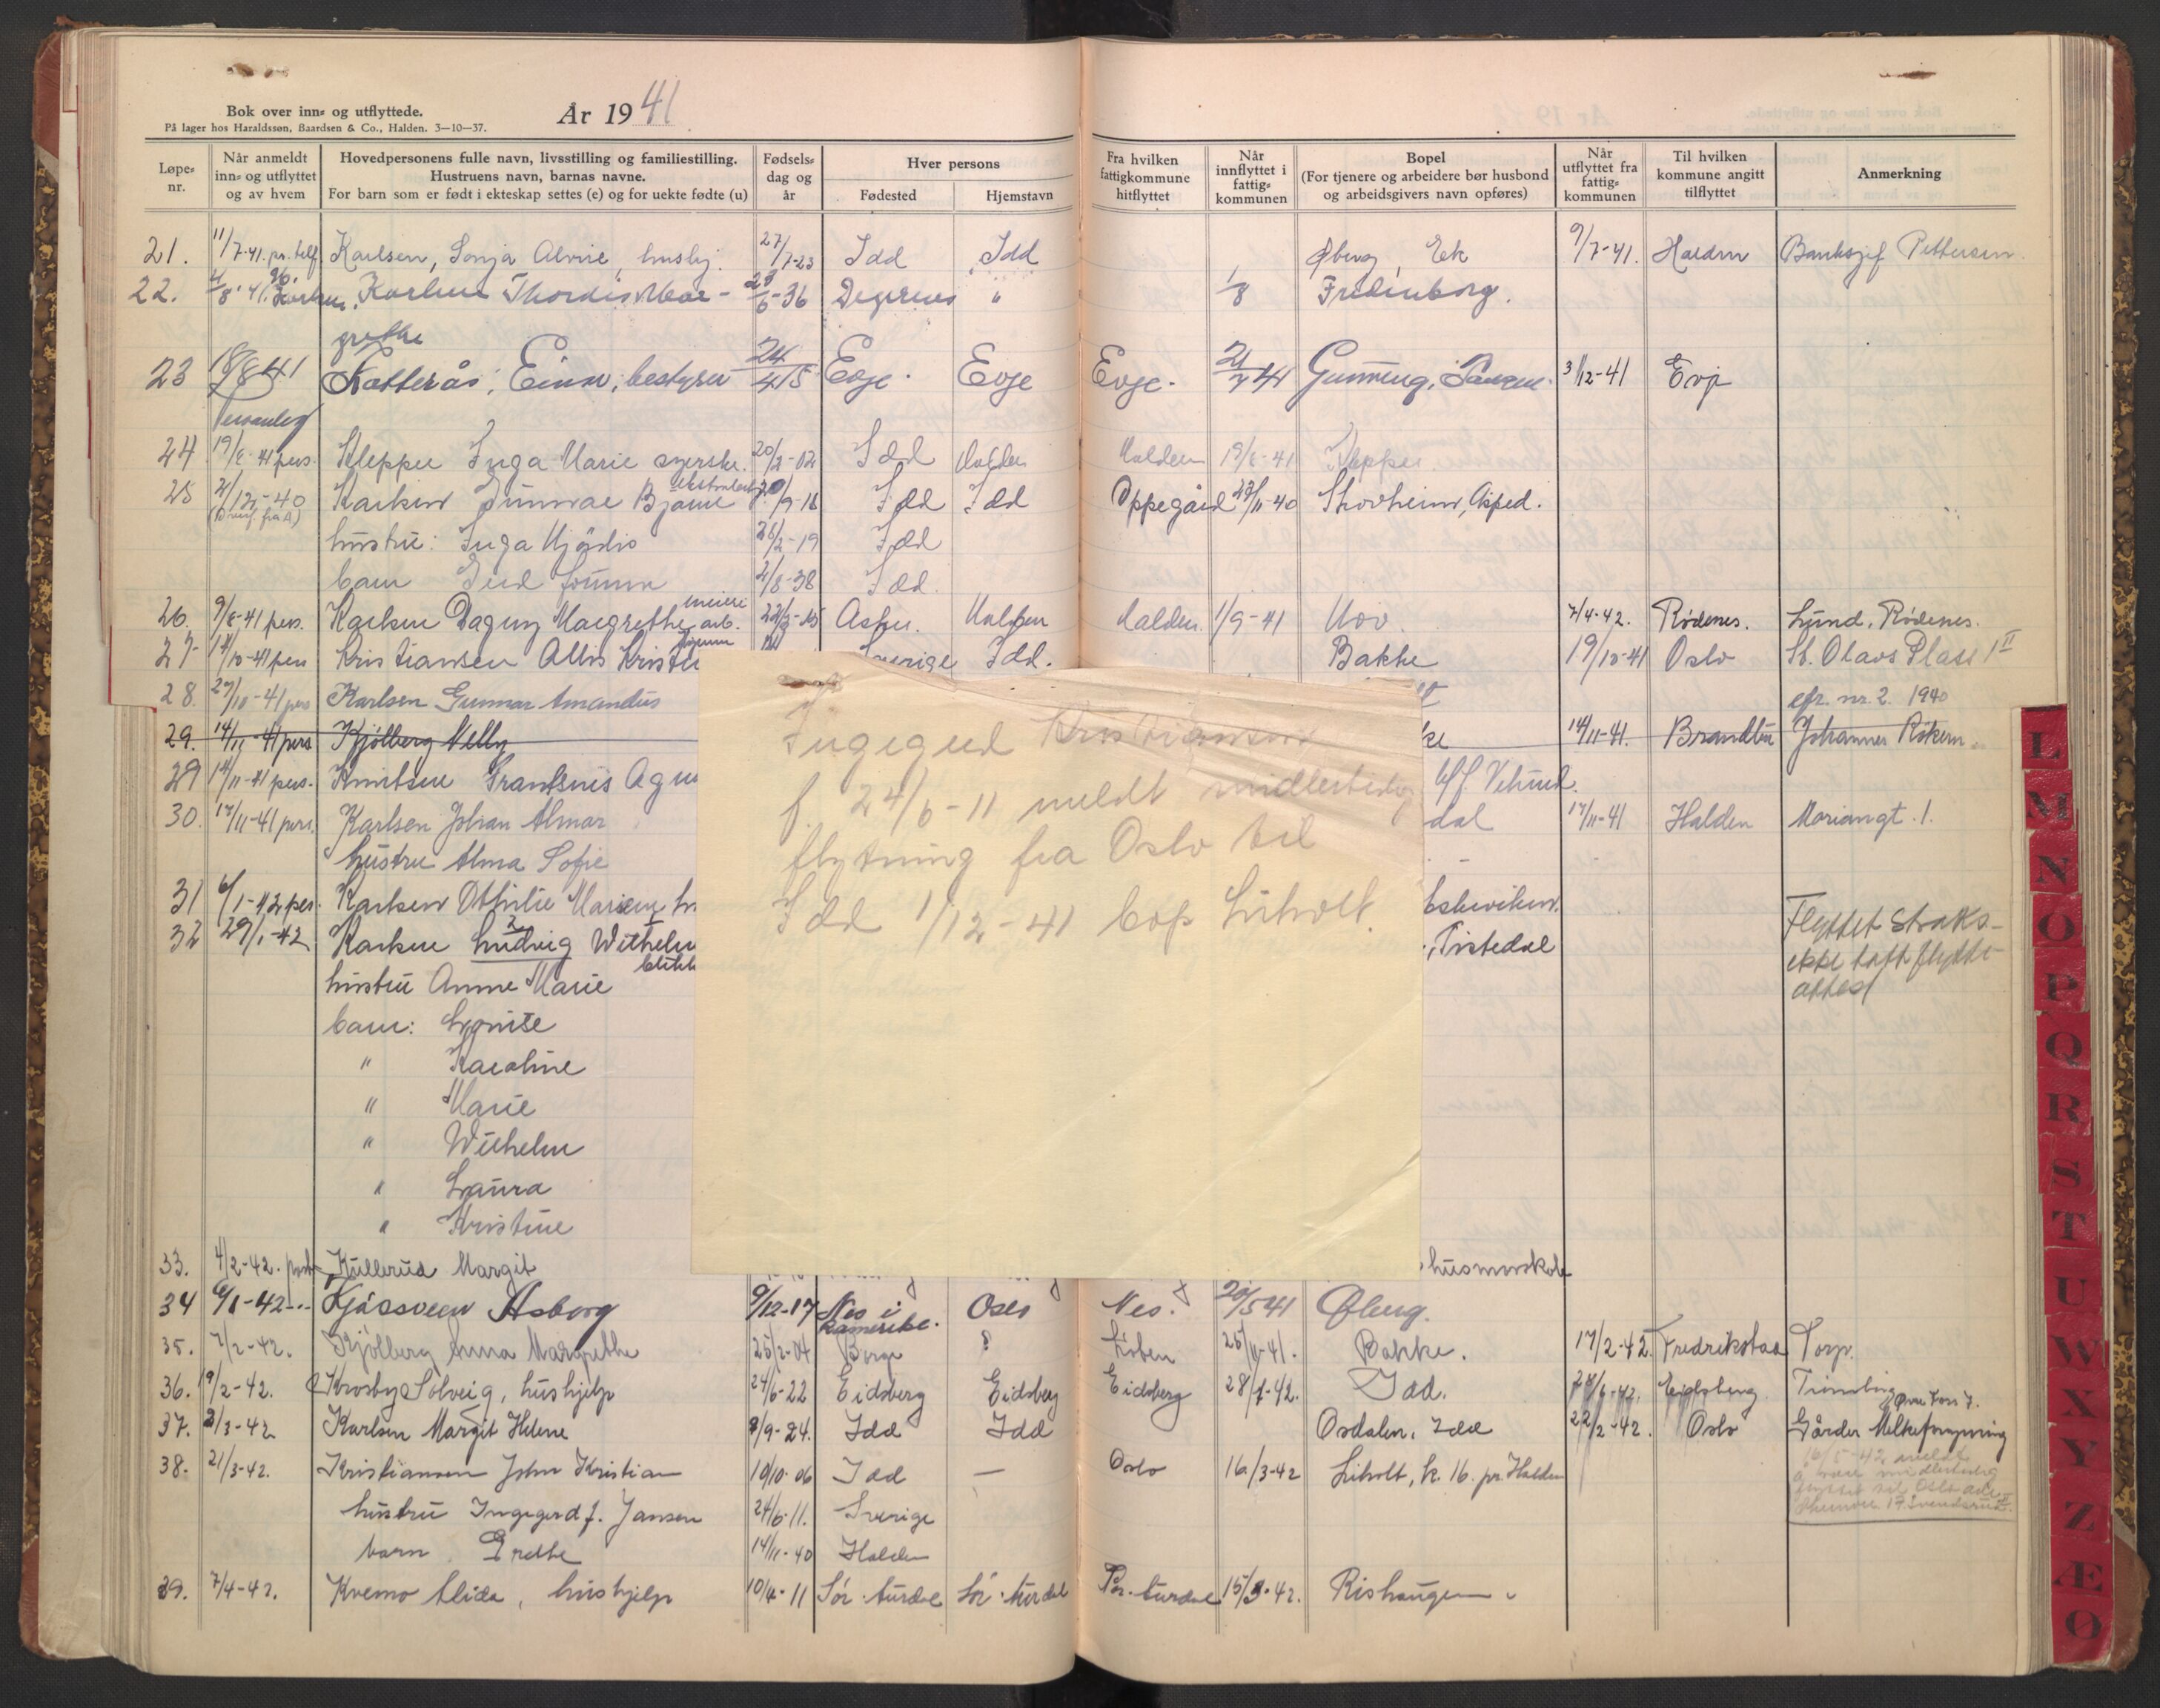 Bok over inn= og utflyttede.
På lager hos Haraldssøn, Baardsen & Co., Halden. 3—10—37.
År 1941
Løpe=nr.
Når anmeldt inn= og utflyttet og av hvem
Hovedpersonens fulle navn, livsstilling og familiestilling.
Hustruens navn, barnas navne.
For barn som er født i ekteskap settes (e) og for uekte fødte (u)
Fødsels=dag og år
Hver persons
Fødested
Hjemstavn
Fra hvilken fattigkommune hitflyttet
Når innflyttet i fattig=kommunen
Bopel
(For tjenere og arbeidere bør husbond og arbeidsgivers navn opføres)
Når utflyttet fra fattig=kommunen
Til hvilken kommune angitt tilflyttet
Anmerkning
21. 11/7-41. pr. telf Karlsen, Sonja Alvine, hushj. 27/7-23 Idd Idd Øberg, Ek 9/7-41. Halden Banksjef Pettersen
22. 4/8-41. Karlsen Thordis Mar- 29/6-36 Degernes " 1/8 Fredenborg.
grethe
23 18/8 41 Katterås, Einar, bestyrer 24/4 15 Evje Evje Evje 21/7 41 3/12-41 Evje
24 19/8-41 pers. Kleppe Inga Marie syerske. 20/2-02 Idd Halden Halden 19/8-41 Kleppe
25 2/12-40 Karlsen Gunnar Bjarne 20/9-18 Idd Idd Oppegård 23/11-40 Skovheim, Asped.
hustru: Inga Hjördis 28/2-19 Idd
barn 2/8-38 Idd.
26. 9/8-41 pers. Karlsen Dagny Margrethe meieri arb. Halden Halden. 1/9-41 Hov. 7/4-42. Rødenes. Lund, Rødenes.
27 14/10-41 pers Kristiansen Sverige Idd. Bakke 19/10-41 Oslo St. Olavs Plass 1 II
28. 27/10-41 pers Karlsen Gunnar Amandus cfr. nr. 2. 1940
29. 14/11-41 pers Kjølberg Nelly ke 14/11-41. Brandbu Johannes Røken.
29 14/11-41 pers. Knutsen
30. 17/11-41 pers. Karlsen Johan Almar dal 17/11-41 Halden Mariangt. 1.
hustru Alma Sofie
31 6/1-42 pers. Karlsen Othilie
32 29/1-42 Karlsen Ludvig Wilhelm , Tistedal Flyttet straks-
ikke tatt flytte-
attest
hustru Anne Marie
barn: Lovise
" Karoline
" Marie
" Wilhelm
" Laura
" Kristine
33. 4/2-42. post Kullerud Margit husmorskole
34 6/1-42 Kjåssveen Asborg 9/12-17 Nes i Romerike. Oslo Nes. 20/5 41 Øberg.
35. 7/2-42. Kjølberg Anna Margrethe 25/2-04 Borge ? 25/11-41. Bakke. 17/2-42. Fredrikstad Torp.
36. 19/2-42. Krosby Solveig, hushjelp 24/6-22 Eidsberg Eidsberg Eidsberg 28/1-42. Idd. Eidsberg
37. 2/3-42 Karlsen Margit Helene 8/9-24. Idd Idd Osdalen, Idd 22/2-42. Oslo Gårder Melkeforsyning
38. 21/3-42. Kristiansen John Kristian 10/10-06 Idd — Oslo 16/3-42 Liholt, k. 16. pr Halden 16/5-42 meldt
å være midlertidig
flyttet til Oslo
hustru Ingegerd f. Jansen 24/6-11. Sverige
barn Grethe 14/11-40 Halden
39. 7/4-42. Kvemo Alida, hushjelp 10/4-11 Sør-Aurdal Sør-Aurdal Sør-Aurdal 15/3-42. Rishaugen
Ingegerd Kristiansen
f. 24/6-11 meldt midlertidig
flytning fra Oslo til
Idd 1/12-41 bop Liholt.
L
M
N
O
P
Q
R
S
T
U
W
X
Y
Z
Æ
Ø